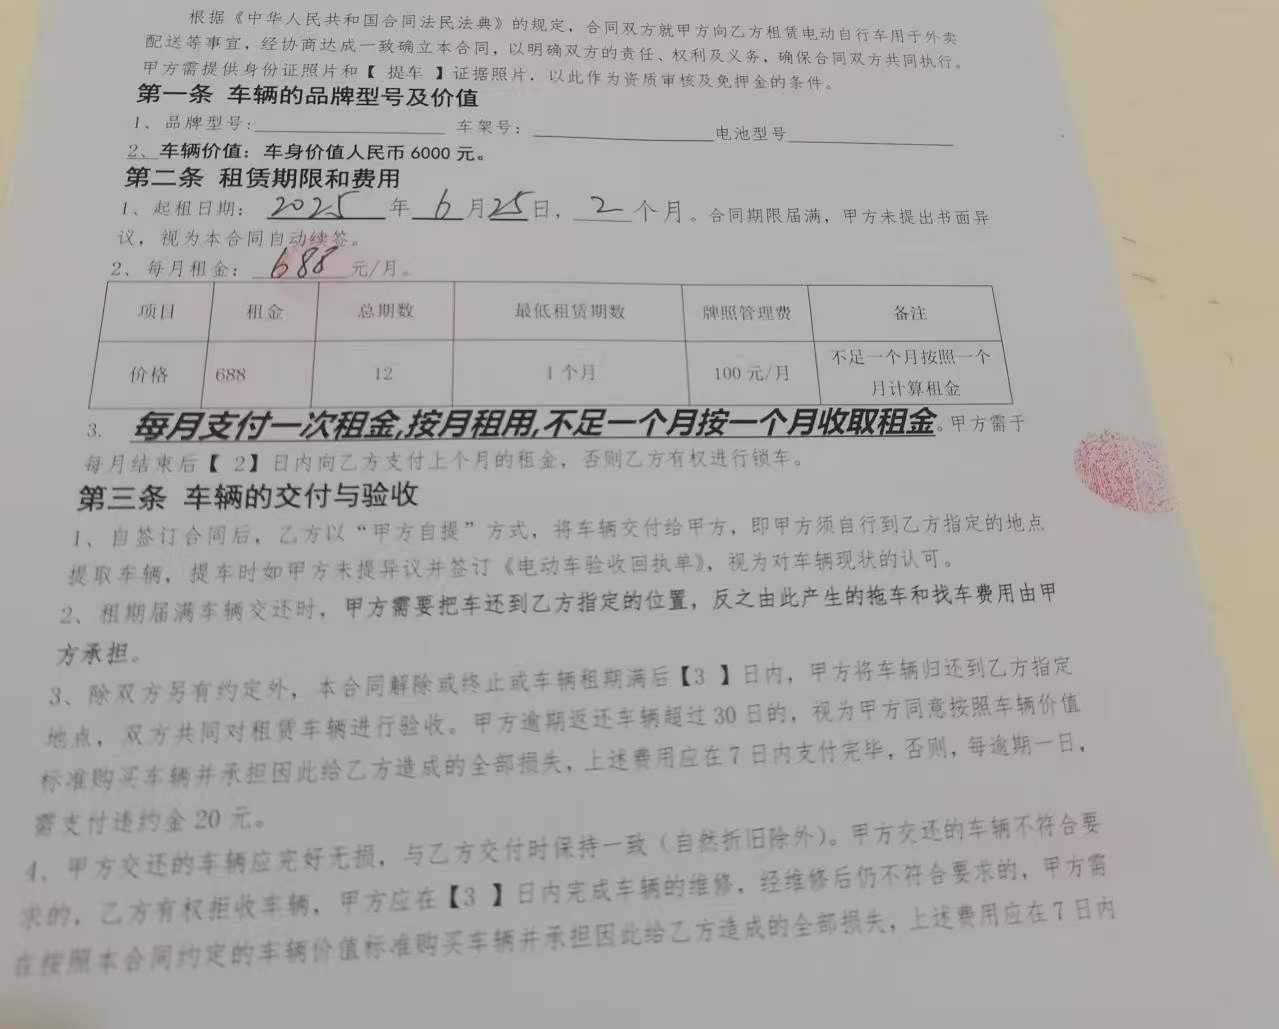 根据《中华人民共和国合同法民法典》的规定，合同双方就甲方向乙方租赁电动自行车用于外卖
配送等事宜，经协商达成一致确立本合同，以明确双方的责任、权利及义务，确保合同双方共同执行。
甲方需提供身份证照片和【 提车 】证据照片，以此作为资质审核及免押金的条件。
第一条 车辆的品牌型号及价值
1、品牌型号：____________ 车架号：____________电池型号____________
2、车辆价值：车身价值人民币 6000 元。
第二条 租赁期限和费用
1、起租日期： 2025 年 6 月25日， 2 个月。合同期限届满，甲方未提出书面异
议，视为本合同自动续签。
2、每月租金： 688 元/月。
项目 租金 总期数 最低租赁期数 牌照管理费 备注
价格 688 12 1 个月 100 元/月 不足一个月按照一个
月计算租金
3. 每月支付一次租金,按月租用,不足一个月按一个月收取租金。甲方需于
每月结束后【 2】日内向乙方支付上个月的租金，否则乙方有权进行锁车。
第三条 车辆的交付与验收
1、自签订合同后，乙方以“甲方自提”方式，将车辆交付给甲方，即甲方须自行到乙方指定的地点
提取车辆，提车时如甲方未提异议并签订《电动车验收回执单》，视为对车辆现状的认可。
2、租期届满车辆交还时，甲方需要把车还到乙方指定的位置，反之由此产生的拖车和找车费用由甲
方承担。
3、除双方另有约定外，本合同解除或终止或车辆租期满后【3 】日内，甲方将车辆归还到乙方指定
地点，双方共同对租赁车辆进行验收。甲方逾期返还车辆超过 30 日的，视为甲方同意按照车辆价值
标准购买车辆并承担因此给乙方造成的全部损失，上述费用应在 7 日内支付完毕，否则，每逾期一日，
需支付违约金 20 元。
4、甲方交还的车辆应完好无损，与乙方交付时保持一致（自然折旧除外）。甲方交还的车辆不符合要
求的，乙方有权拒收车辆，甲方应在【3 】日内完成车辆的维修，经维修后仍不符合要求的，甲方需
在按照本合同约定的车辆价值标准购买车辆并承担因此给乙方造成的全部损失，上述费用应在 7 日内